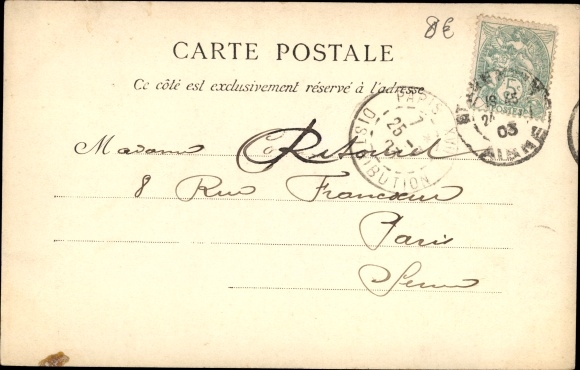 8€
CARTE POSTALE
Ce côté est exclusivement réservé à l'adresse
5
POSTES
PARIS
7
25
DISTRIBUTION
25
03
AISNE
Madame
8 Rue Francœur
Paris
Seine